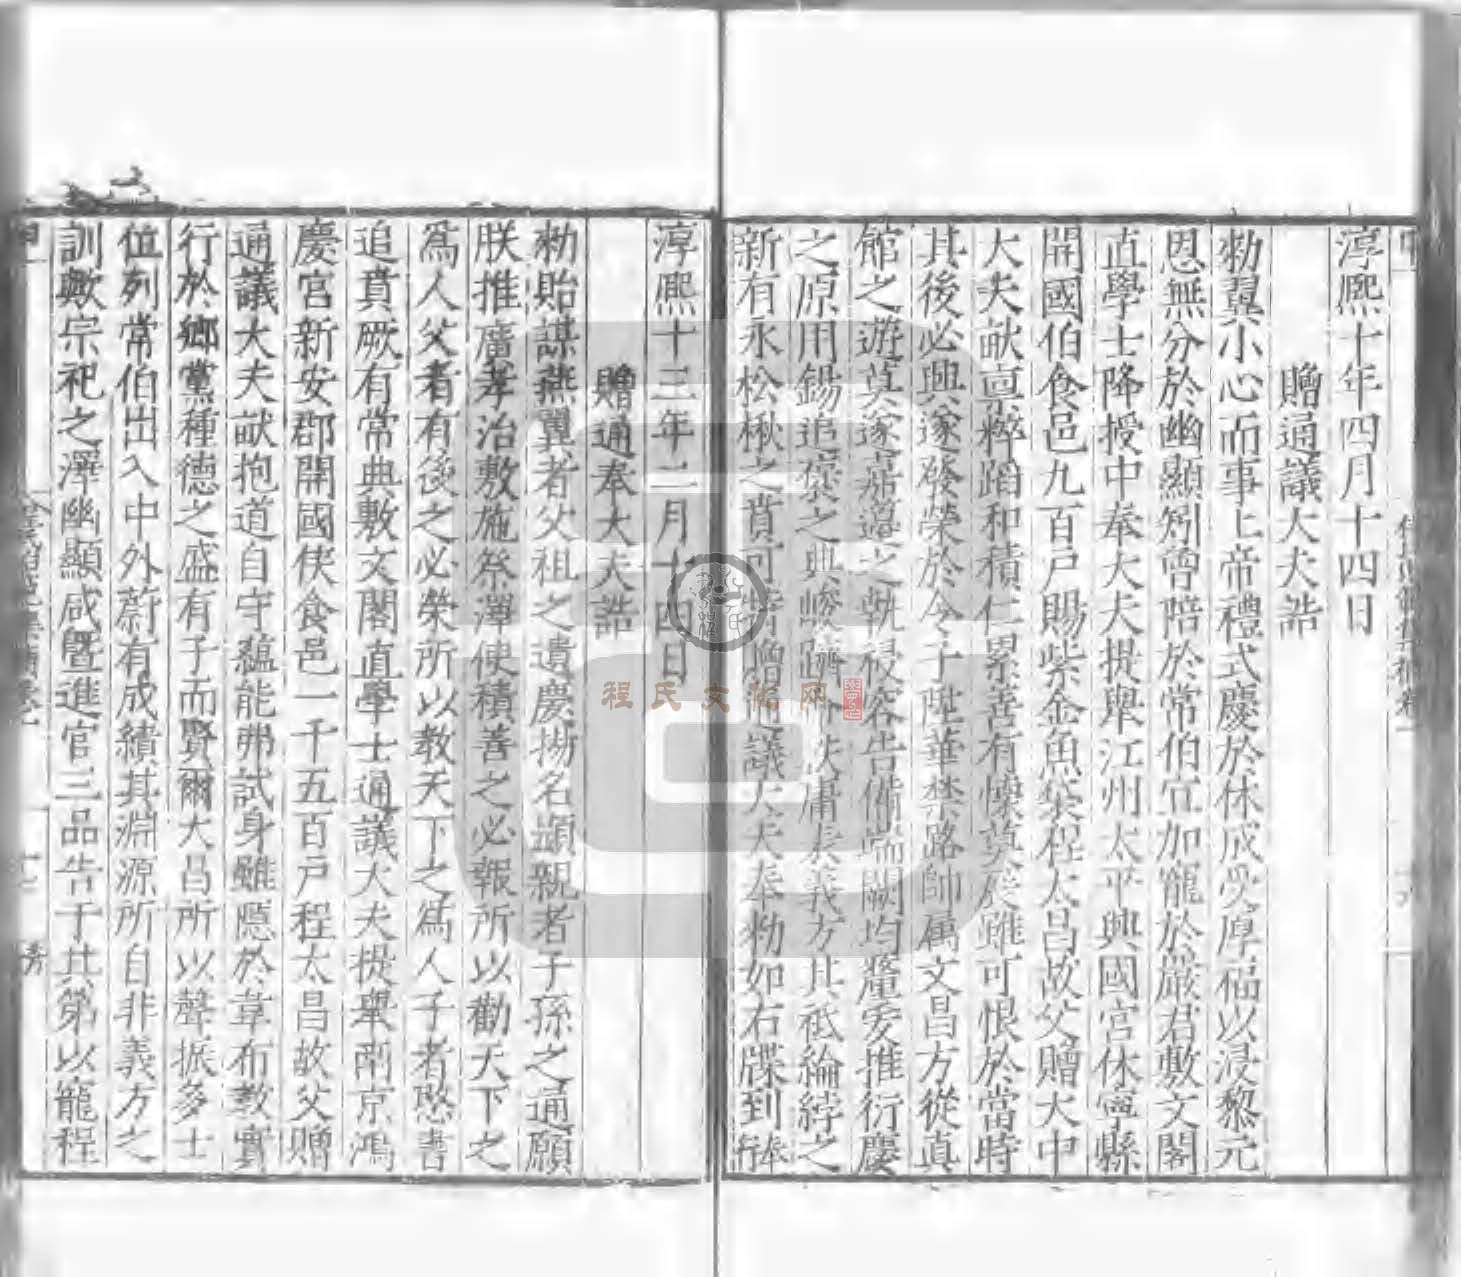 淳熙十年四月十四日
贈通議大夫誥
勑翼小心而事上帝禮式慶於休成受厚福以浸黎元
恩無分於幽顯矧曾陪於常伯宜加寵於嚴君敷文閣
直學士降授中奉大夫提舉江州太平興國宮休寧縣
開國伯食邑九百戶賜紫金魚袋程大昌故父贈大中
大夫畎禀粹蹈和積仁累善有懐莫展雖可恨於當時
其後必興遂發榮於令子陞華禁路帥属文昌方從真
館之遊莫遂嘉遯之執祲容告備端闕均釐爰推衍慶
之原用錫追褒之典峻躋 秩庸表義方其祗綸綍之
新有永松楸之賁可特贈 議大夫奉勑如右牒到奉行
淳熙十三年二月十四日
贈通奉大夫誥
勑貽謀燕翼者父祖之遺慶揚名顯親者子孫之通願
朕推廣孝治敷施祭澤使積善之必報所以勸天下之
爲人父者有後之必榮所以教天下之爲人子者愍書
追賁厥有常典敷文閣直學士通議大夫提舉南京鴻
慶宮新安郡開國侯食邑一千五百戶程大昌故父贈
通議大夫畎抱道自守蘊能弗試身雖隠於韋布教實
行於鄉黨種德之盛有子而賢爾大昌所以聲振多士
位列常伯出入中外蔚有成績其淵源所自非義方之
訓歟宗祀之澤幽顯咸曁進官三品告于其第以寵程
程氏文化网